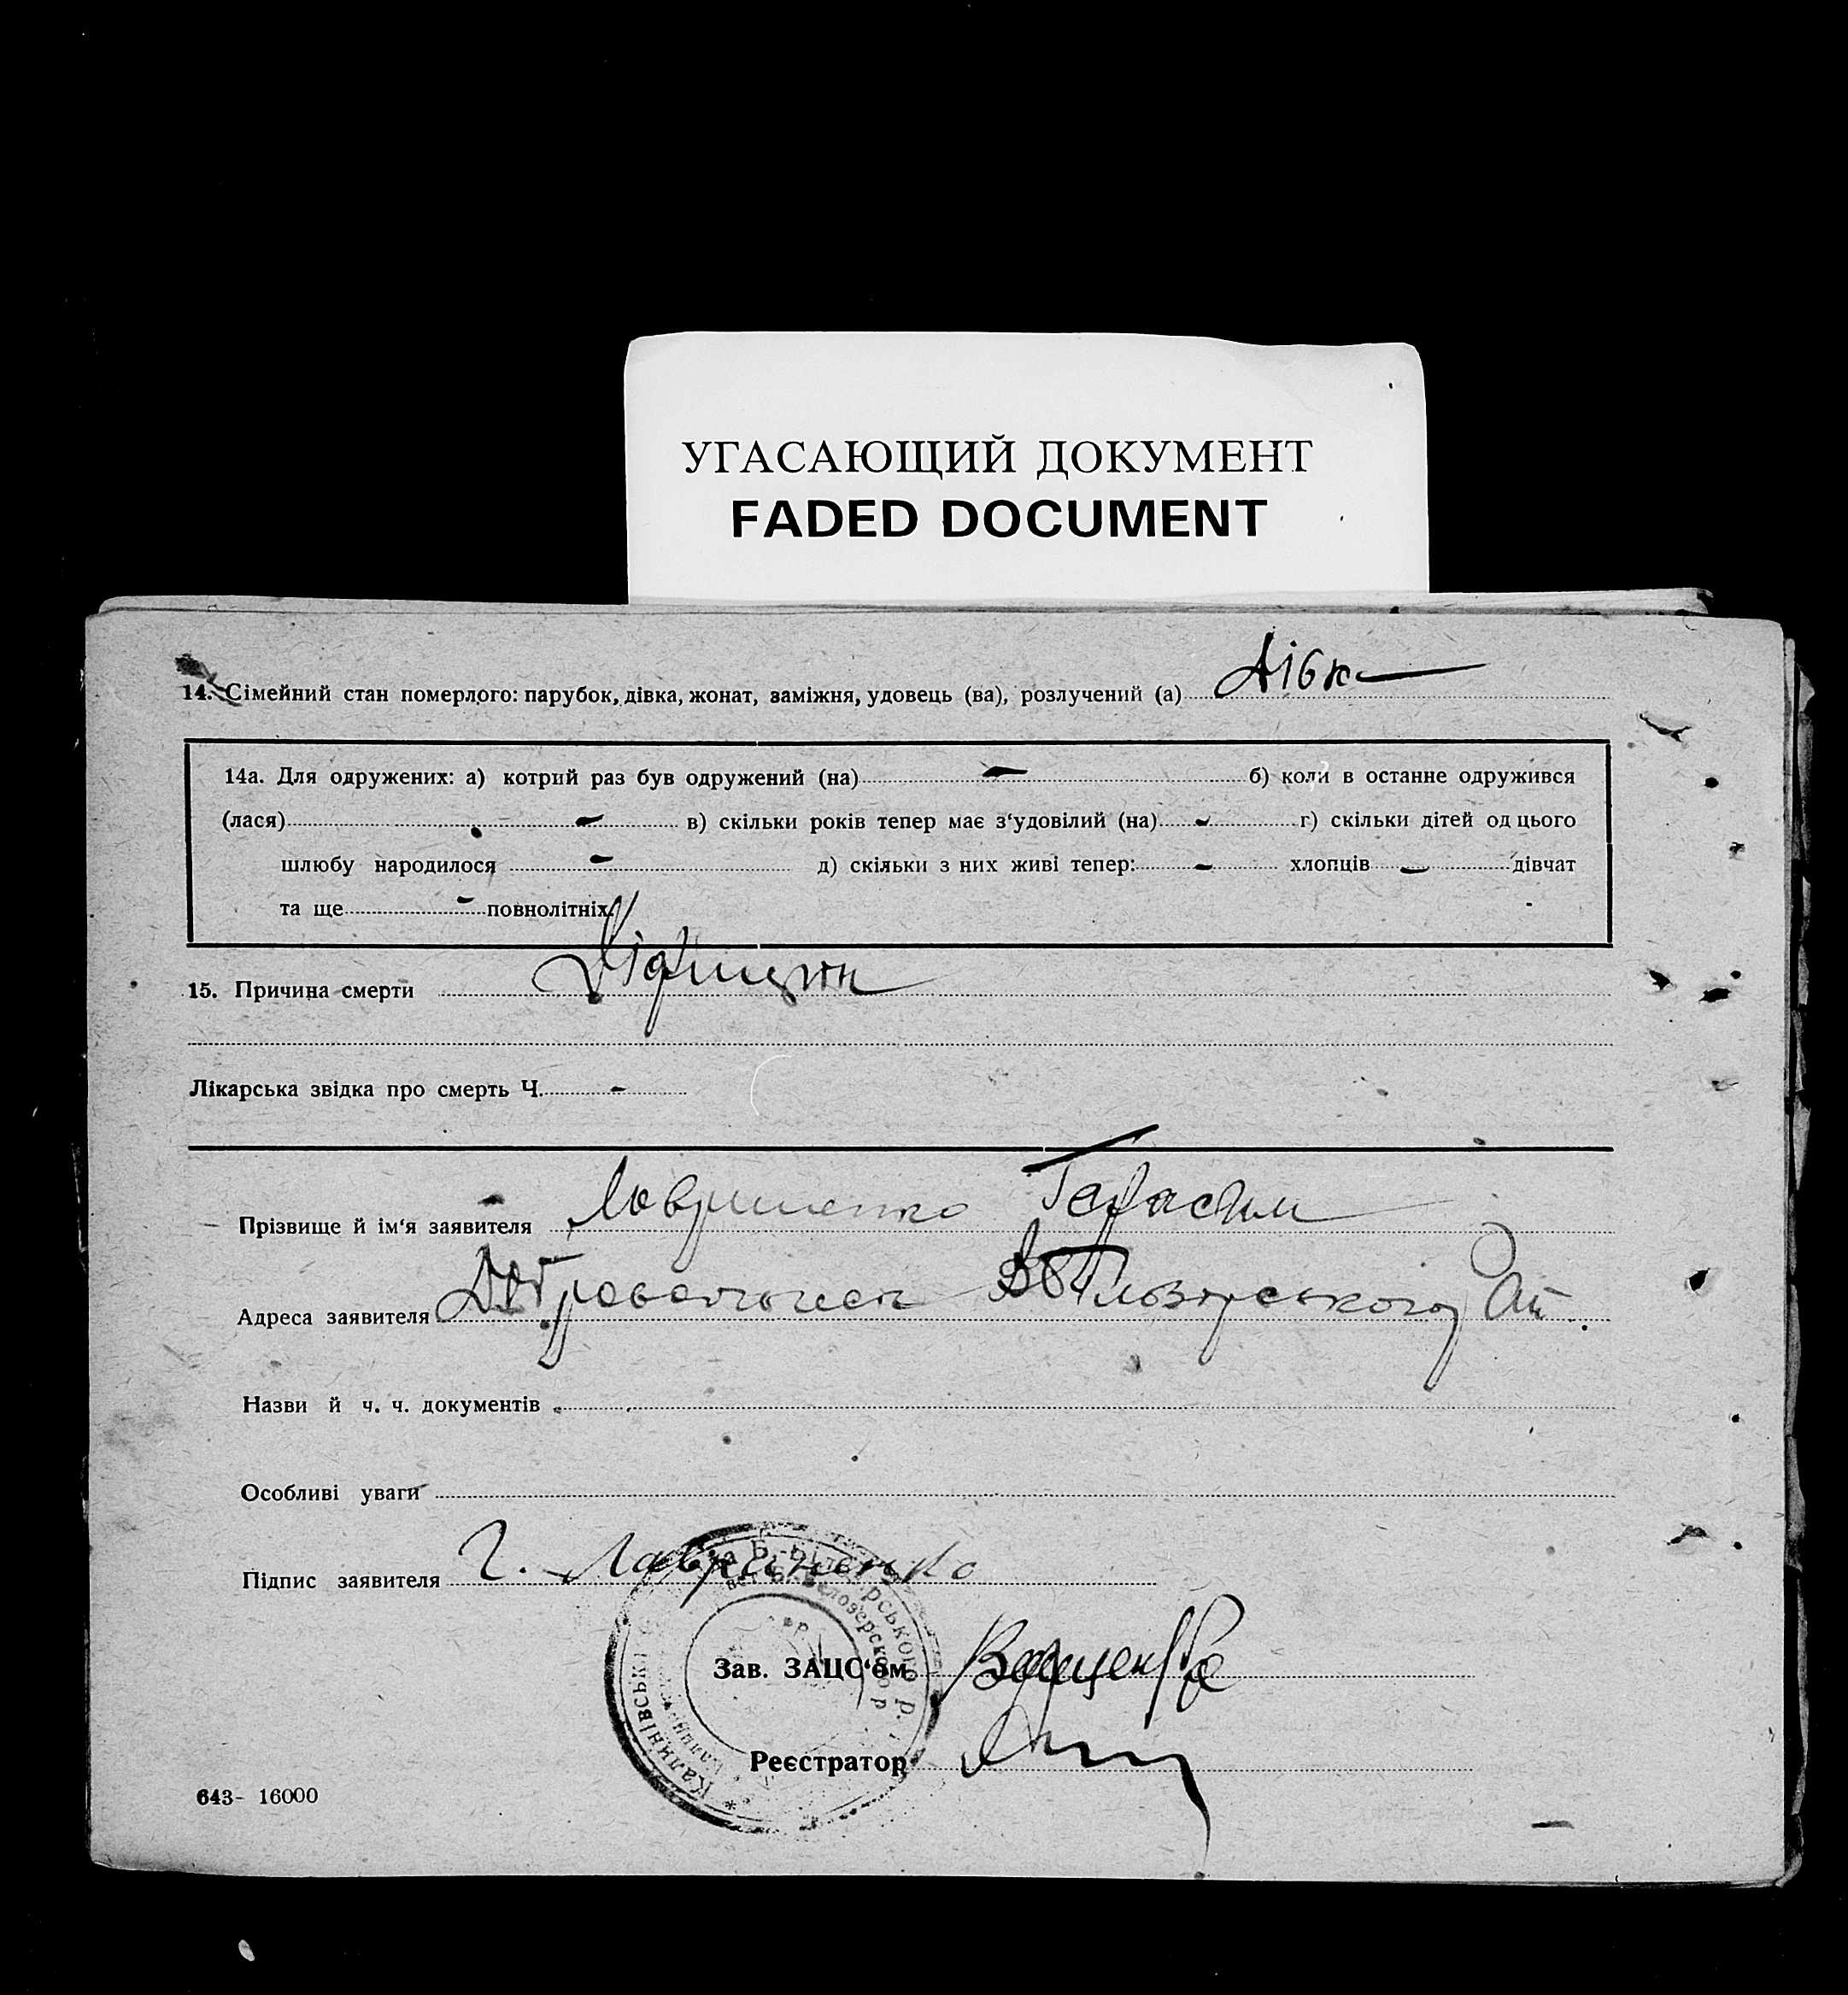 УГАСАЮЩИЙ ДОКУМЕНТ
FADED DOCUMENT
14. Сімейний стан померлого: парубок, дівка, жонат, заміжня, удовець (ва), розлучений (а) дівка
14а. Для одружених: а) котрий раз був одружений (на) - б) коли в останнє одружився
(лася) - в) скільки років тепер має з‘удовілий (на) - г) скільки дітей од цього
шлюбу народилося - д) скільки з них живі тепер: - хлопців - дівчат
та ще - повнолітніх.
15. Причина смерти
Лікарська звідка про смерть Ч. -
Прізвище й ім‘я заявителя Лавриненко Герасим
Адреса заявителя
Назви й ч. ч. документів
Особливі уваги
Підпис заявителя Г. Лавриненко
Зав. ЗАЦС‘ом Ващенко
Реєстратор
643- 16000